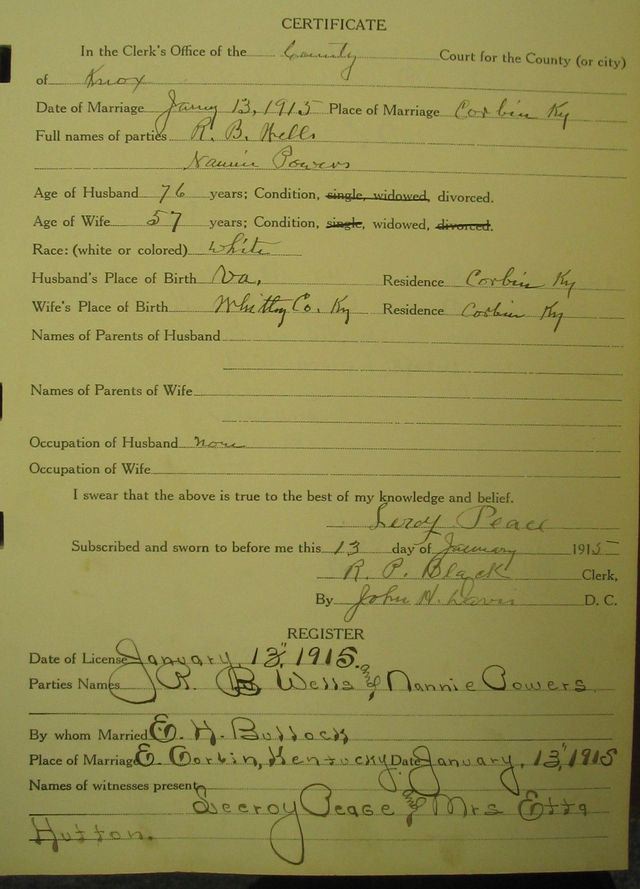 CERTIFICATE
In the Clerk's Office of the County Court for the County (or city)
of Knox
Date of Marriage Jany 13, 1915 Place of Marriage Corbin Ky
Full names of parties R. B. Wells
Nannie Powers
Age of Husband 76 years; Condition, single, widowed, divorced.
Age of Wife 57 years; Condition, single, widowed, divorced.
Race: (white or colored) white
Husband's Place of Birth Va. Residence Corbin Ky
Wife's Place of Birth Whitley Co. Ky Residence Corbin Ky
Names of Parents of Husband
Names of Parents of Wife
Occupation of Husband none
Occupation of Wife
I swear that the above is true to the best of my knowledge and belief.
Leroy Peace
Subscribed and sworn to before me this 13 day of January 1915
R. P. Black Clerk,
By John H. Davis D. C.
REGISTER
Date of License January, 13", 1915.
Parties Names R. B Wells and Nannie Powers.
By whom Married E. H. Bullock
Place of Marriage E. Corbin, Kentucky. Date January, 13", 1915
Names of witnesses present
Leeroy Pease and Mrs Etta
Hutton.